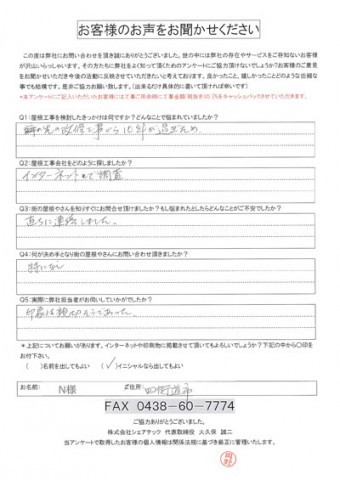 お客様のお声をお聞かせください
この度は弊社にお問い合わせを頂き誠にありがとうございました。世の中には弊社の存在やサービスをご存知ないお客様
が沢山いらっしゃいます。その方たちに弊社をよく知って頂くためのアンケートにご協力頂けないでしょうか?お客様のご意見
をお聞かせいただき今後の活動に反映させていただきたいと考えております。良かったこと、嬉しかったことどのような些細な
事でも結構です。是非ご協力お願い致します。(出来るだけ具体的に書いて頂ければ幸いです)
Q1:屋根工事を検討したきっかけは何ですか?どんなことで悩まれていましたか?
の改修工事から10年が過ぎため
Q2:屋根工事会社をどのように探しましたか?
インターネットで調査
Q3:街の屋根やさんを知りすぐにお問合せ頂けましたか?もし悩まれたとしたらどんなことがご不安でしたか?
直ちに連絡しました。
Q4:何が決め手となり街の屋根やさんにお問い合わせ頂きましたか?
特になし
Q5:実際に弊社担当者がお伺いしていかがでしたか?
印象は親切そうであった。
*上記についてお願いがあります。インターネットや印刷物に掲載させて頂いてもよろしいでしょうか?下記の中から〇印を
お付下さい。
( )名前を出してもよい (✓)イニシャルなら出してもよい
お名前: N様 ご住所: 四街道市
FAX 0438-60-7774
ご協力ありがとうございました。
株式会社シェアテック 代表取締役 大久保 誠二
当アンケートで取得したお客様の個人情報は関係法規に基づき厳正に管理いたします。